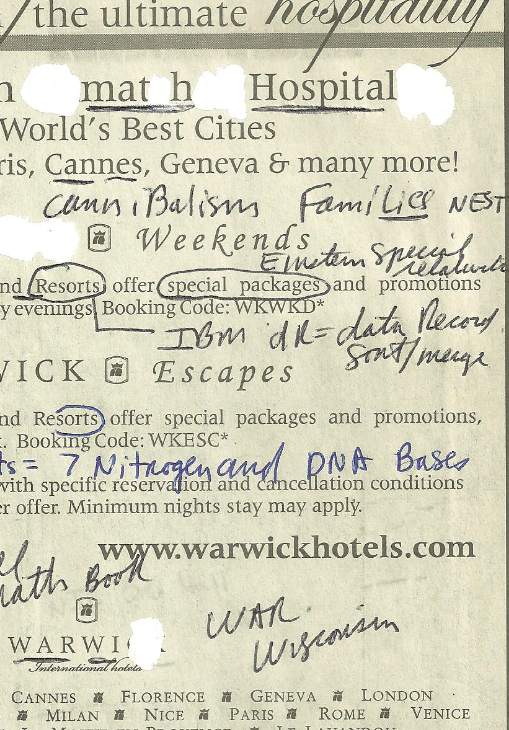 /the ultimate hospitality
mat h Hospital
World's Best Cities
ris, Cannes, Geneva & many more!
canniBalism Families NEST
Weekends
Einstein Special
nd Resorts offer special packages and promotions
y evenings. Booking Code: WKWKD*
IBM dR = data Record
Sort/merge
WICK Escapes
nd Resorts offer special packages and promotions,
. Booking Code: WKESC*
ts = 7 Nitrogen and DNA Bases
with specific reservation and cancellation conditions
er offer. Minimum nights stay may apply.
www.warwickhotels.com
math Book
WAR
Wisconsin
WARWI
International hotels
CANNES FLORENCE GENEVA LONDON
MILAN NICE PARIS ROME VENICE